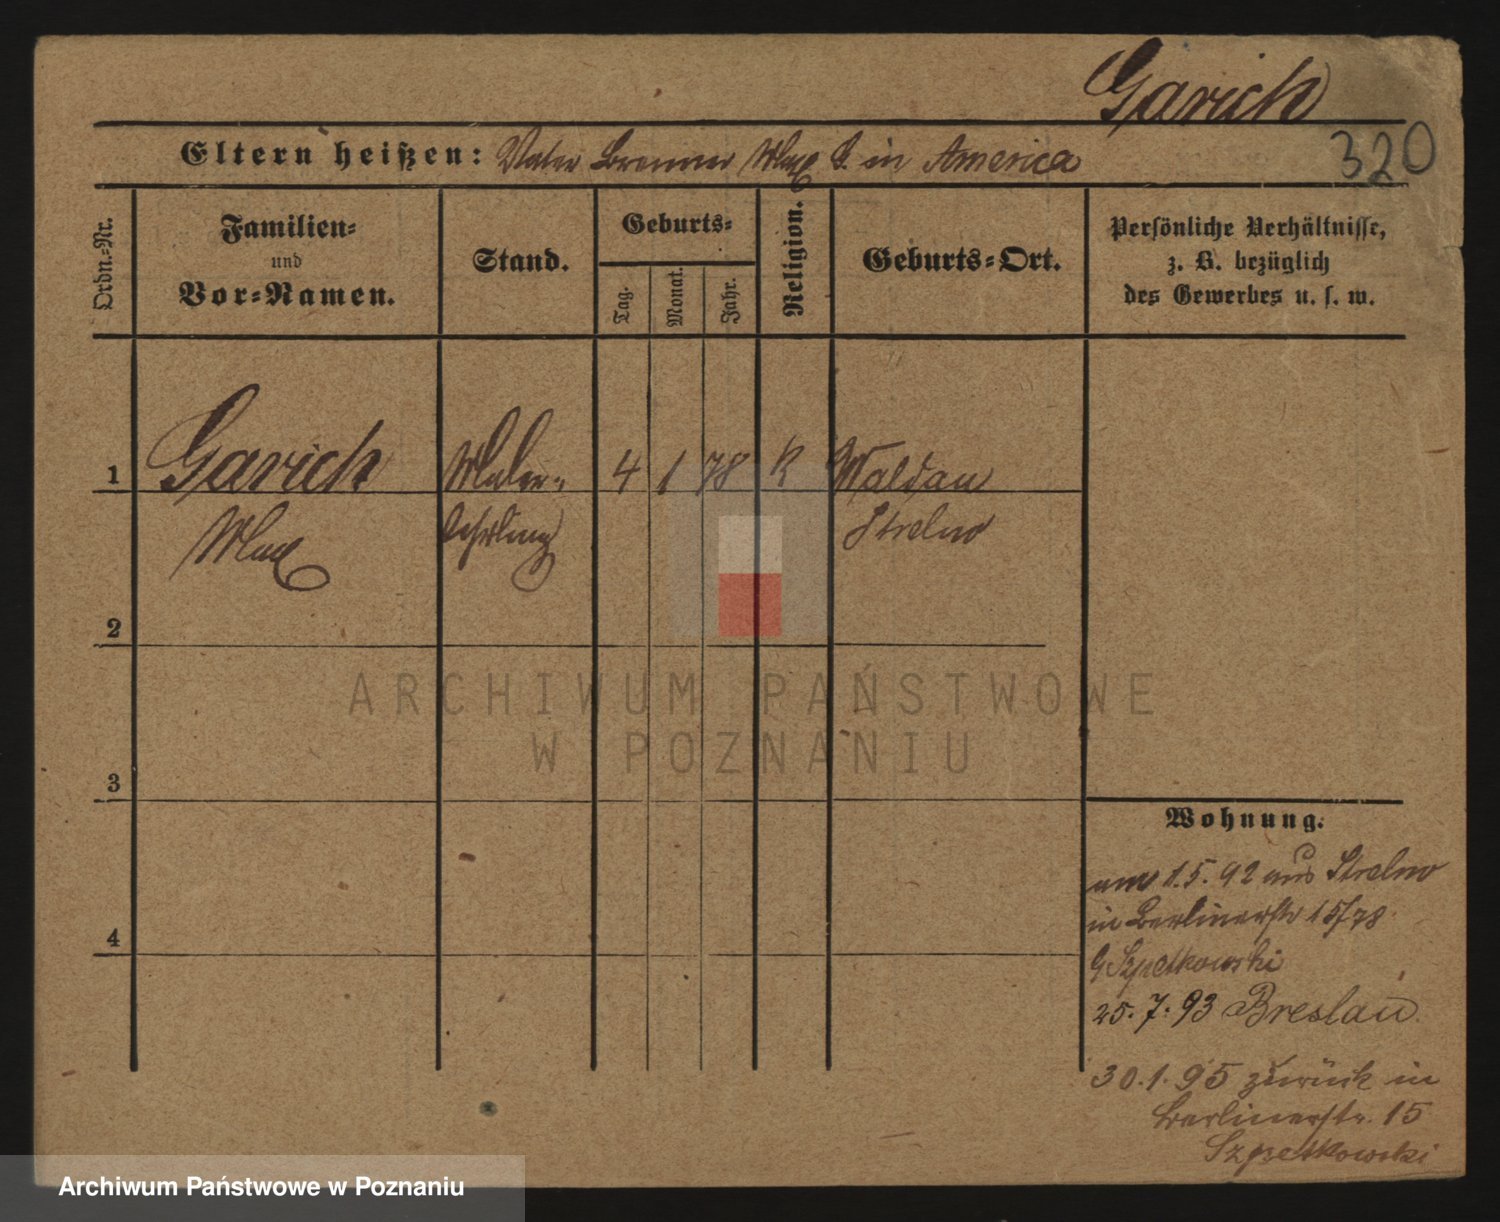 Garich
320
Eltern heißen: Vater Brenner Max G. in America
Ordn.-Nr.
Familien-
und
Vor-Namen.
Stand.
Geburts-
Tag.
Monat.
Jahr.
Religion.
Geburts-Ort.
Persönliche Verhältnisse,
z. B. bezüglich
des Gewerbes u. s. w.
1 Garich Maler- 4 1 78 K Waldau
Max lehrling Strelno
2
3
4
Wohnung.
am 1.5.92 aus Strelno
in Berlinerstr 15/78
Szpetkowski
25.7.93 Breslau
30.1.95 zurück in
Berlinerstr. 15
Szpetkowski
ARCHIWUM PAŃSTWOWE
W POZNANIU
Archiwum Państwowe w Poznaniu